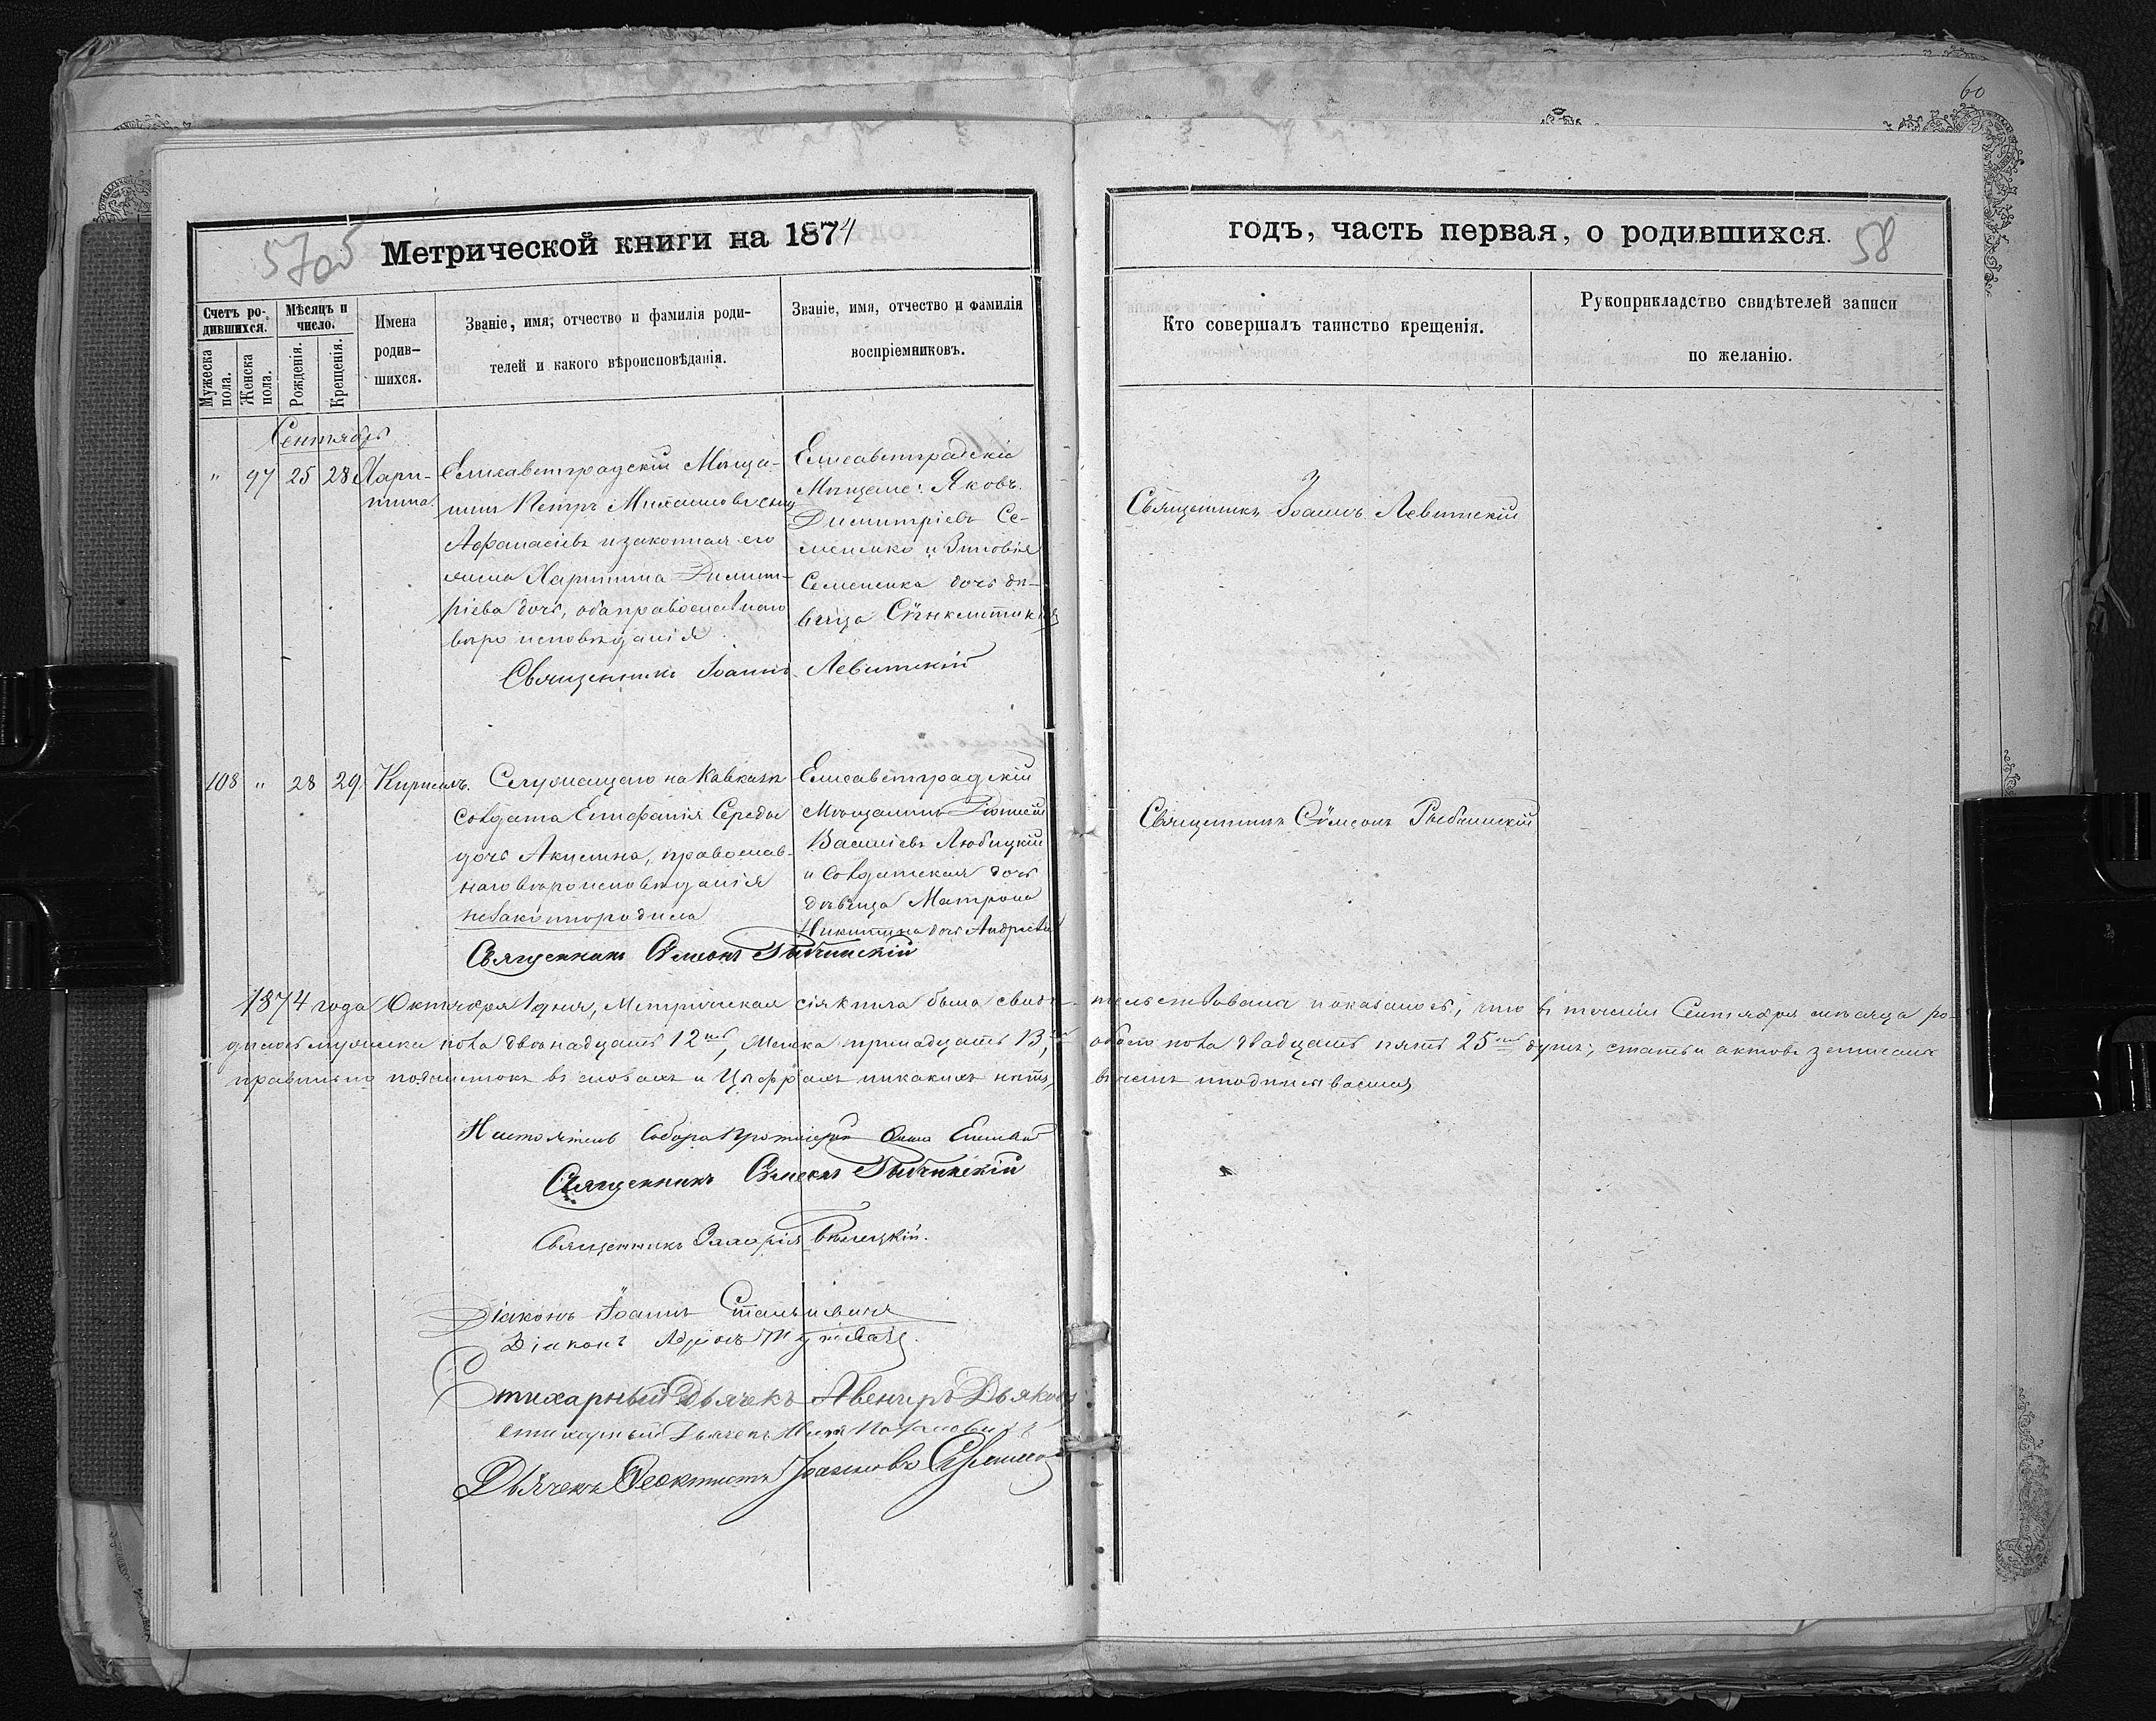 60
5705
Метрической книги на 1874
годъ, часть первая, о родившихся.
58
Счетъ ро-
дившихся.
Мужеска
пола.
Женска
пола.
Мѣсяцъ и
число.
Рожденія.
Крещенія.
Имена
родив-
шихся.
Званіе, имя, отчество и фамилія роди-
телей и какого вѣроисповѣданія.
Званіе, имя, отчество и фамилія
воспріемниковъ.
Кто совершалъ таинство крещенія.
Рукоприкладство свидѣтелей записи
по желанію.
Сентябрь
" 97 25 28 Хари-
тина.
Елисаветградскій Мѣща-
нинъ Петръ Михаиловъ сынъ
Афанасіевъ и законная его
жена Харитина Димит-
ріева дочь, оба православнаго
вѣроисповѣданія.
Елисаветградскіе
Мѣщане: Яковъ
Димитріевъ Се-
мененко и Зиновія
Семененка дочь дѣ-
вица Сѵнклитикія
Священникъ Іоаннъ Левитскій
Священникъ Іоаннъ Левитскій
108 " 28 29 Кириллъ.
Служащаго на Кавказѣ
солдата Епифанія Середы
дочь Акилина, православ-
наго вѣроисповѣданія
незаконнородила
Елисаветградскій
Мѣщанинъ
Василіевъ Любицкій
и солдатская дочь
дѣвица Матрона
Никитина дочь
Священникъ Сѵмеонъ Рыбчинскій
Священникъ Сѵмеонъ Рыбчинскій
1874 года Октября 1 дня, Метрическая сія книга была свидѣ-
тельствована и оказалось, что въ теченіи Сентября мѣсяца ро-
дилось мужеска пола двенадцать 12ть, Женска тринадцать 13,ть
обоего пола двадцать пять 25ть душъ; статьи актовъ записаны
правильно почистокъ въ словахъ и Цыфрахъ никакихъ нѣтъ,
въ чемъ и подписываемся
Настоятель Собора Протоіерей
Священникъ Сѵмеонъ Рыбчинскій
Священникъ Бѣлецкій.
Діаконъ Іоаннъ
Діаконъ
Стихарный Дьячекъ Авениръ Дьяковъ
стихарный Дьячекъ
Дьячекъ Феоктистъ